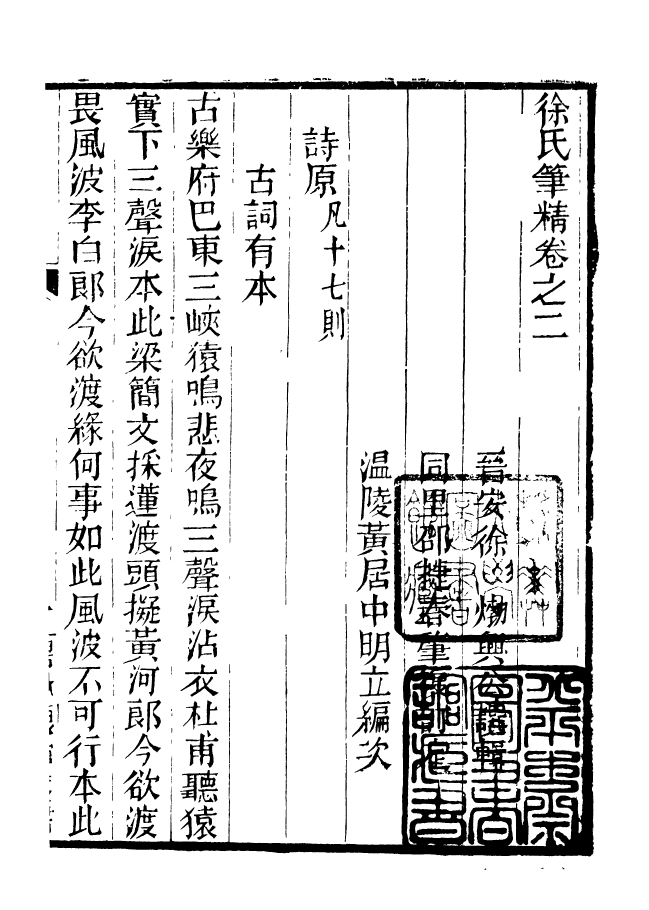 徐氏筆精卷之二
晉安徐𤊹興公講輯
同里邵捷春肇復訂
温陵黃居中明立編次
詩原凡十七則
古詞有本
古樂府巴東三峽猿鳴悲夜鳴三聲淚沾衣杜甫聽猿
實下三聲淚本此梁簡文採蓮渡頭擬黃河郎今欲渡
畏風波李白郎今欲渡緣何事如此風波不可行本此